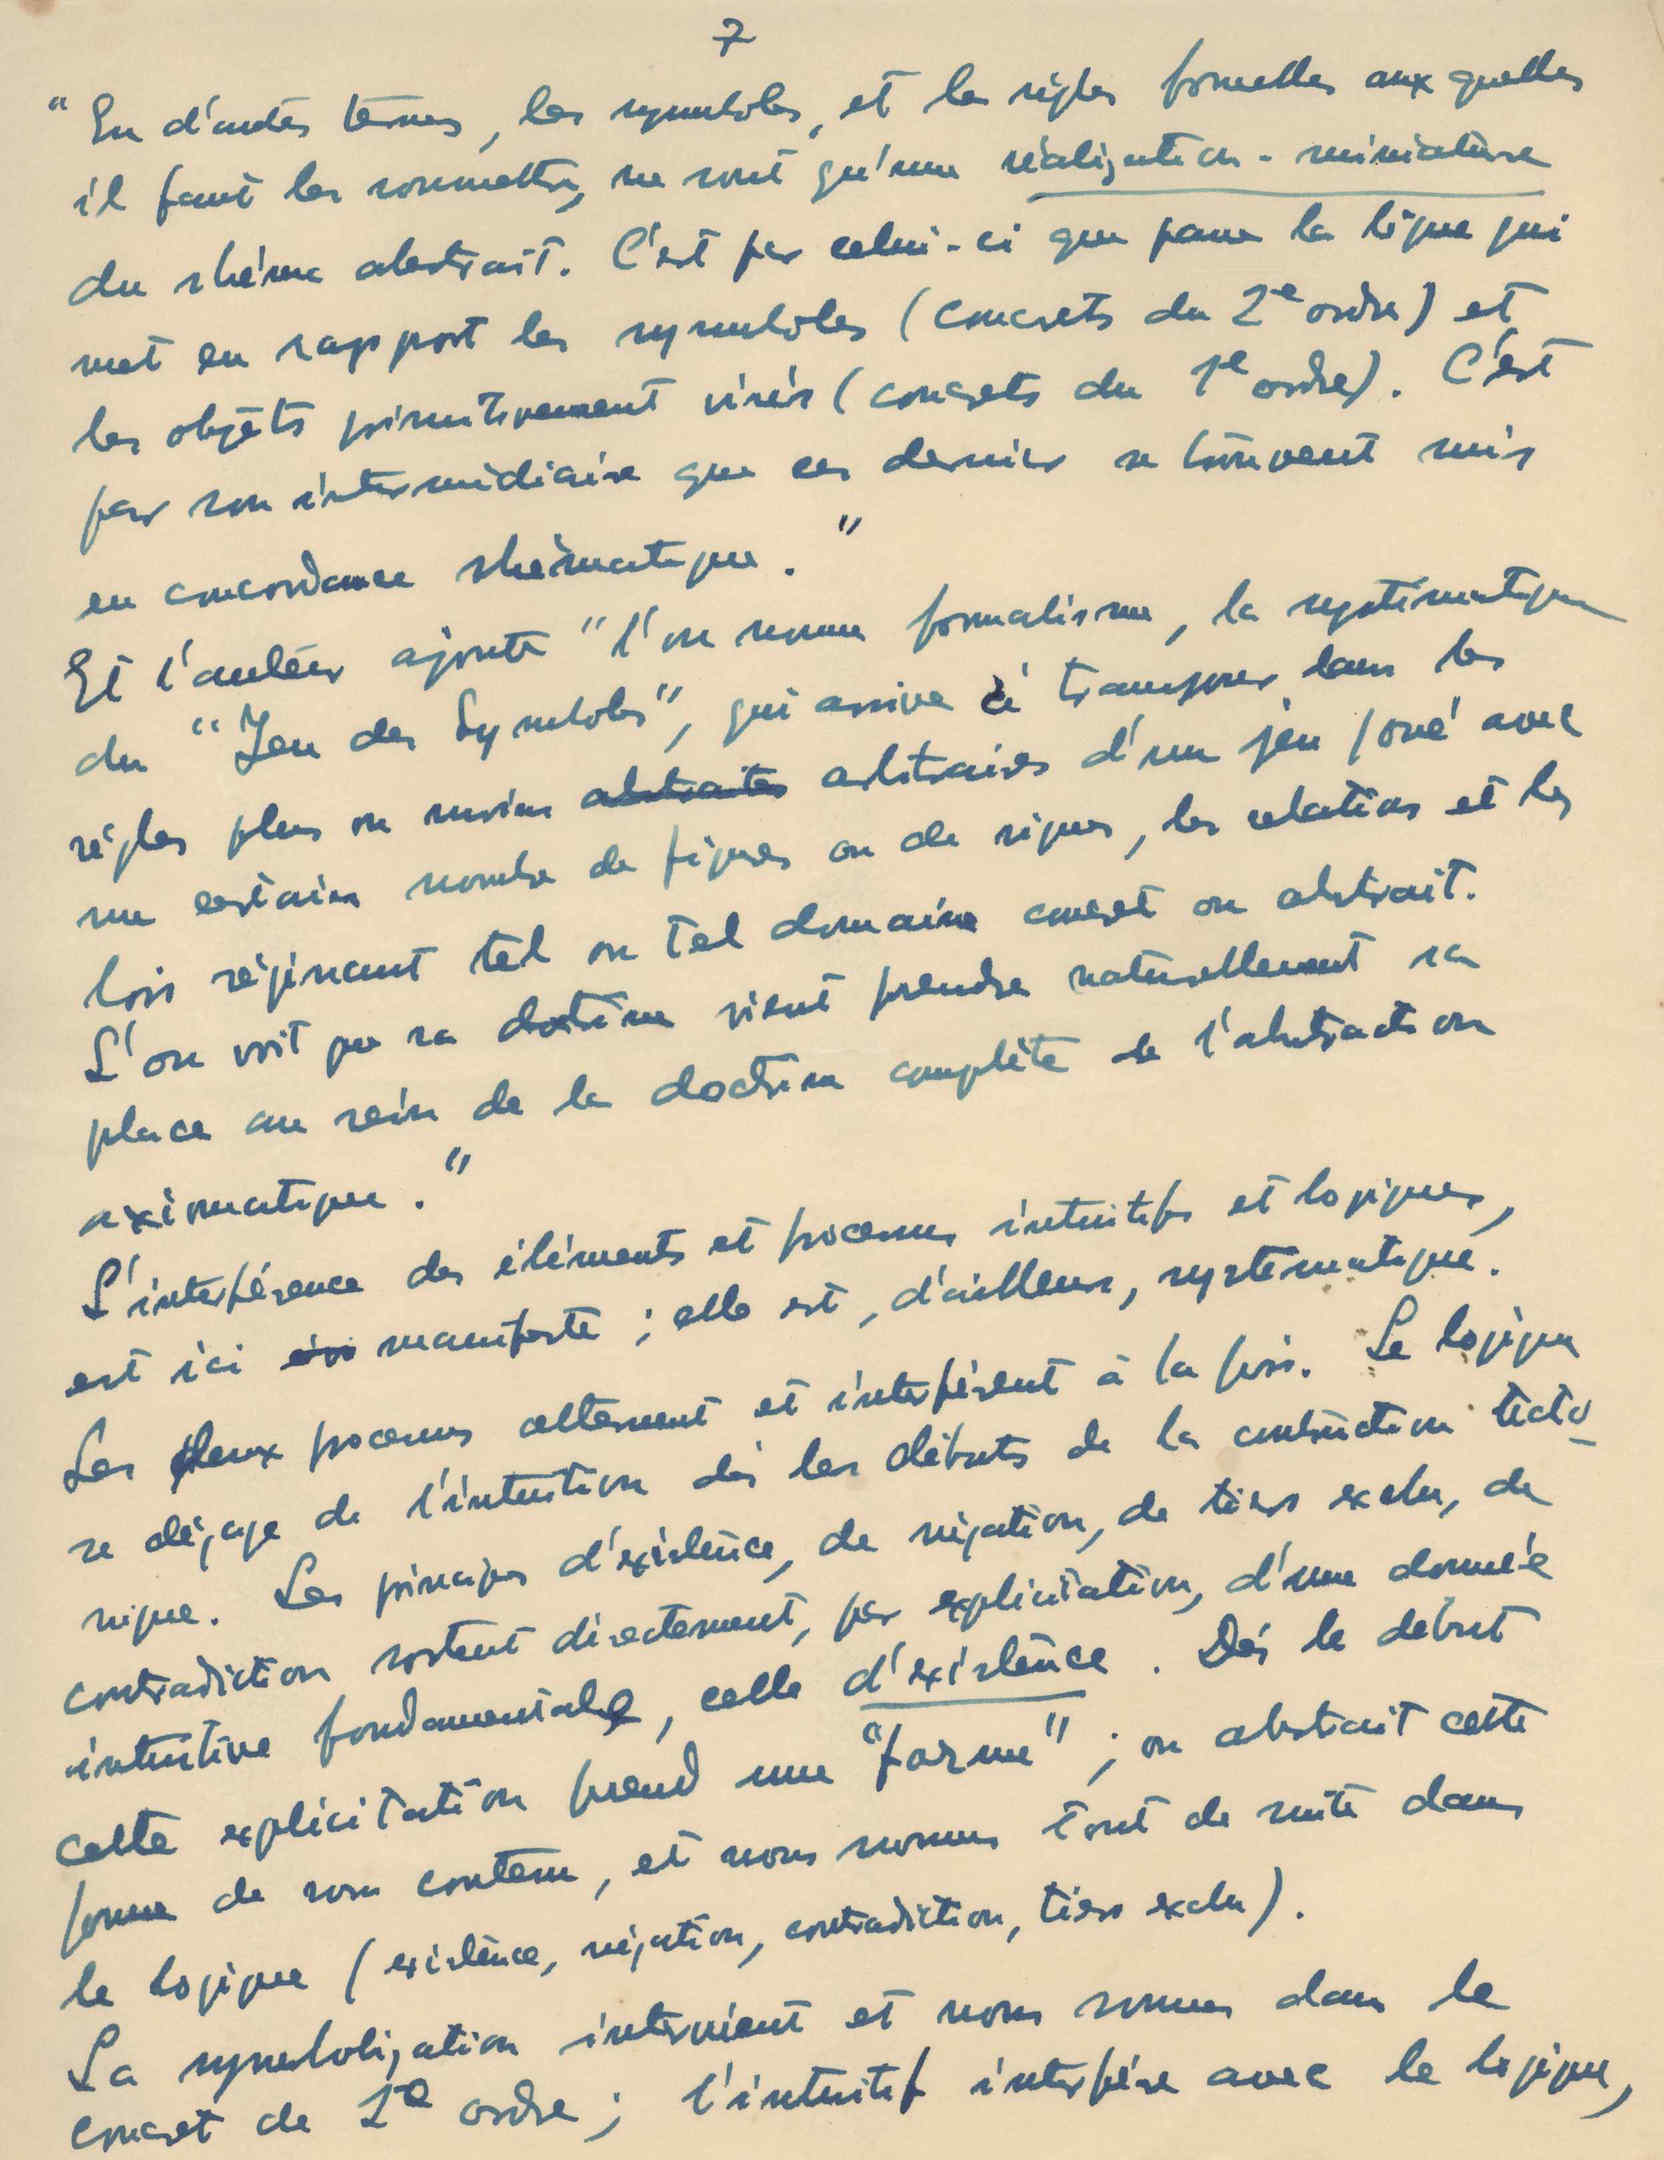 7
" En d'autres termes, les symboles, et les règles formelles aux quelles
il faut les soumettre, ne sont qu'une réalisation-miniature
du shéma abstrait. C'est par celui-ci que passe la ligne qui
met en rapport les symboles (concrets du 2e ordre) et
les objets primitivement visés (concrets du 1e ordre). C'est
par son intermédiaire que ces dernier se trouvent mis
en concordance shématique."
Et l'auteur ajoute "l'on nomme formalisme, la systématique
du "Jeu des Symboles", qui arrive à transposer dans les
règles plus ou moins abstraites arbitraires d'un jeu joué avec
un certain nombre de figures ou de signes, les relations et les
lois régissant tel ou tel domaine concret ou abstrait.
L'on voit que sa doctrine vient prendre naturellement sa
place au sein de la doctrine complète de l'abstraction
aximatique."
L'interférence des éléments et processus intuitifs et logiques,
est ici manifeste ; elle est, d'ailleurs, systématique.
Les deux processus alternent et interfèrent à la fois. Le logique
se dégage de l'intuition dès les débuts de la construction tecto-
nique. Les principes d'existence, de négation, de tiers exclu, de
contradiction sortent directement, par explicitation, d'une donnée
intuitive fondamentale, celle d'existence. Dès le début
cette explicitation prend une "forme" ; on abstrait cette
forme de son contenu, et nous sommes tout de suite dans
le logique (existence, négation, contradiction, tiers exclu).
La symbolisation intervient et nous sommes dans le
concret de 2e ordre ; l'intuitif interfère avec le logique,